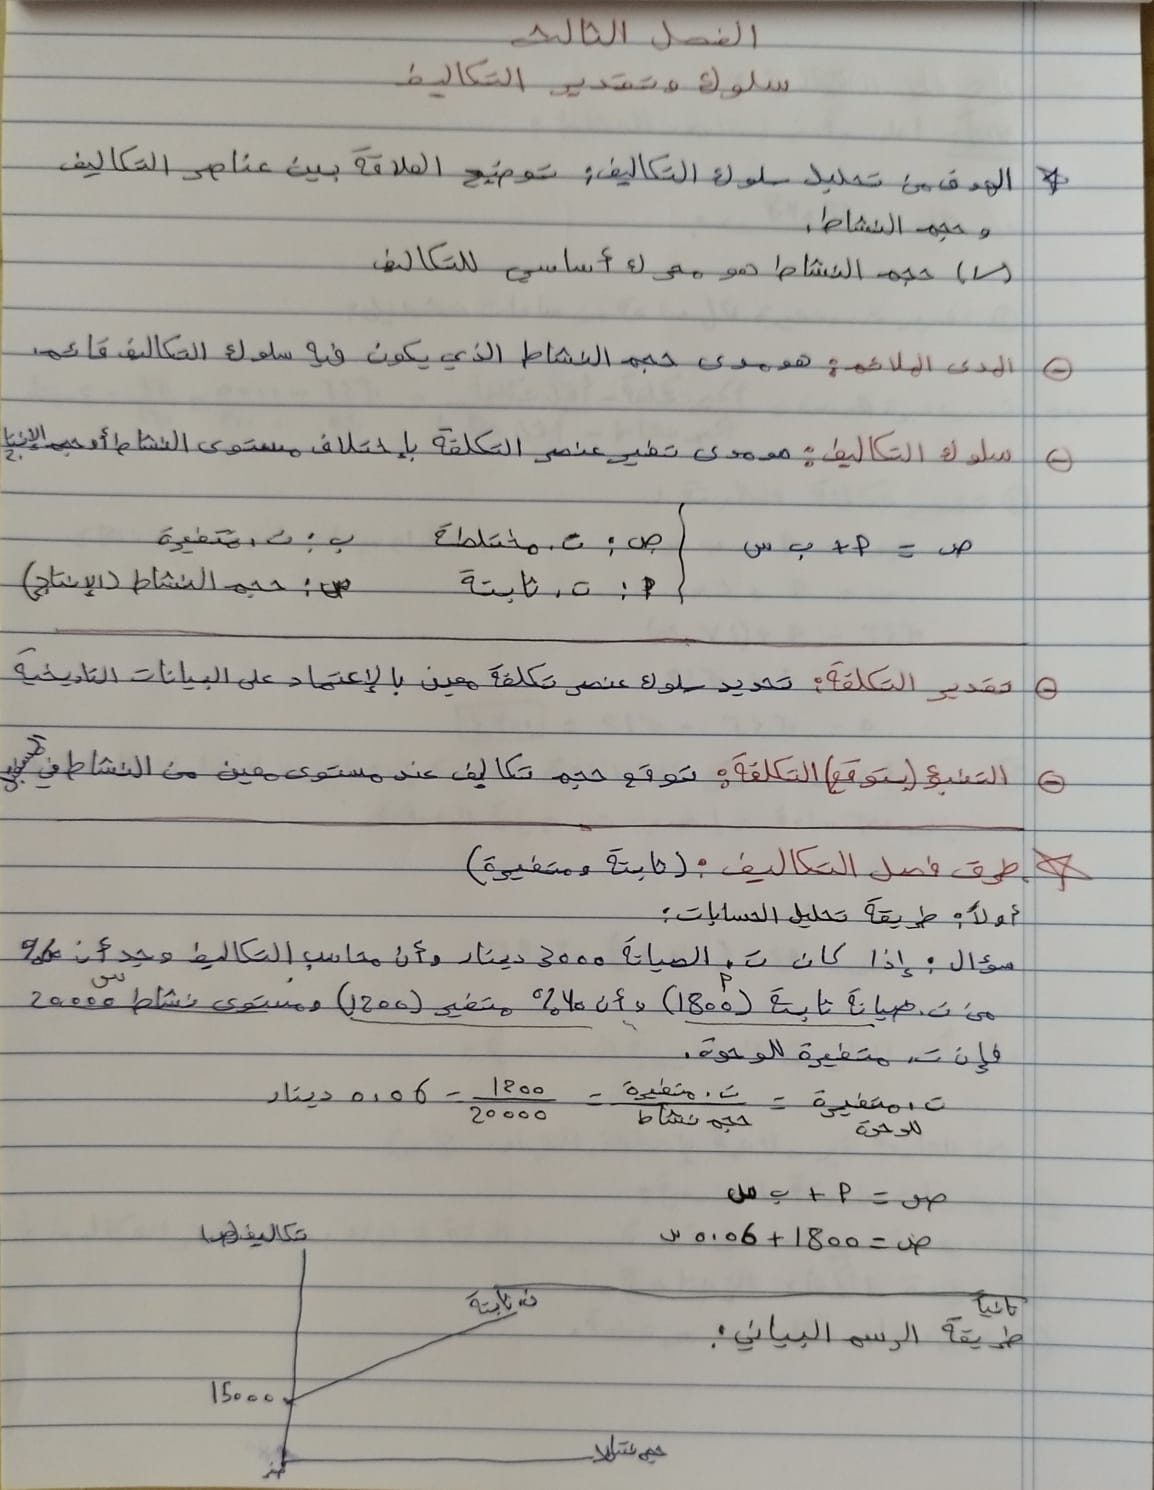 الفصل الثالث
سلوك وتقدير التكاليف
الهدف من تحليل سلوك التكاليف: توضيح العلاقة بين عناصر التكاليف
وحجم النشاط.
(✓) حجم النشاط هو محرك أساسي للتكاليف
المدى الملائم: هو مدى حجم النشاط الذي يكون فيه سلوك التكاليف قائم.
سلوك التكاليف: هو مدى تغير عنصر التكلفة بإختلاف مستوى النشاط أو حجم الإنتاج
ص = أ + ب س
ص: ت. مختلطة ب: ت. متغيرة
أ: ت. ثابتة س: حجم النشاط (الإنتاج)
تقدير التكلفة: تحديد سلوك عنصر تكلفة معين بالإعتماد على البيانات التاريخية
التنبؤ (يتوقع) التكلفة: توقع حجم تكاليف عند مستوى معين من النشاط في
طرق فصل التكاليف: (ثابتة ومتغيرة)
أولاً: طريقة تحليل الحسابات:
سؤال: إذا كان ت. الصيانة 3000 دينار وأن محاسب التكاليف وجد أن
من ت. صيانة ثابتة (1800) وأن متغير (1200) ومستوى نشاط 20000
أ س
فإن ت. متغيرة للوحدة.
ت. متغيرة للوحدة = ت. متغيرة / حجم نشاط = 1200 / 20000 = 0.06 دينار
ص = أ + ب س
ص = 1800 + 0.06 س
ثانياً
طريقة الرسم البياني:
تكاليف (ص)
ت. ثابتة
15000
صفر
حجم نشاط